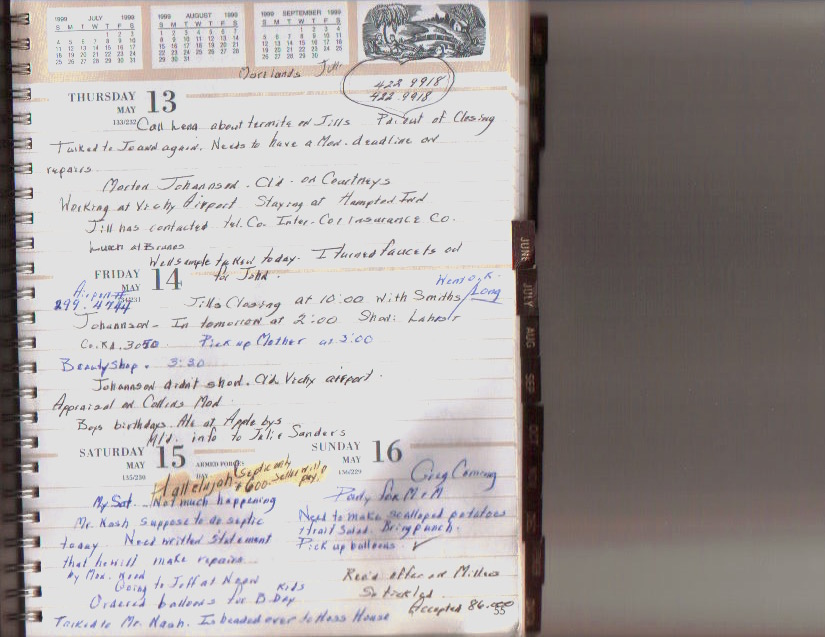 1999 JULY 1999
S M T W T F S
1 2 3
4 5 6 7 8 9 10
11 12 13 14 15 16 17
18 19 20 21 22 23 24
25 26 27 28 29 30 31
1999 AUGUST 1999
S M T W T F S
1 2 3 4 5 6 7
8 9 10 11 12 13 14
15 16 17 18 19 20 21
22 23 24 25 26 27 28
29 30 31
1999 SEPTEMBER 1999
S M T W T F S
1 2 3 4
5 6 7 8 9 10 11
12 13 14 15 16 17 18
19 20 21 22 23 24 25
26 27 28 29 30
Morelands
422 9918
422 9918
THURSDAY 13
MAY
133/232
Call about termite on Jills Pd. out of Closing
Talked to Joann again. Needs to have a Mon. deadline on
repairs
Morton Johannson. Cld. on Courtneys
Working at Vichy Airport Staying at Hampton Inn
Jill has contacted tel. Co. Inter-Co. Insurance Co.
Lunch at Brunos
Well sample taken today. I turned faucets on
for John.
FRIDAY 14
MAY
Airport #
299.4744
Jills Closing at 10:00 with Smiths
Long
Johannson - In tomorrow at 2:00 Show:
Co. Rd. 3050 Pick up Mother at 3:00
Beauty Shop. 3:30
Johannson didn't show. Cld. Vichy airport.
Appraisal on Collins Mon.
Boys birthdays. Ate at Applebys
Mld. info to Julie Sanders
SATURDAY 15
MAY
135/230
ARMED FORCES
Hallelujah Septic only
$600. Seller will
pay!
My Sat. Not much happening
Mr. Nash suppose to do septic
today. Need written statement
that he will make repairs
by Mon. Noon
Going to Jeff at Noon
Ordered balloons for Kids B. Day
Talked to Mr. Nash. Is headed over to Hoss House
SUNDAY 16
MAY
136/229
Greg Coming
Party for M & M
Need to make scalloped potatoes
Fruit Salad. Bring punch.
Pick up balloons ✓
Rec'd offer on Millers
So tickled
Accepted 86.000
55
JUNE
JULY
AUG
SEP
OCT